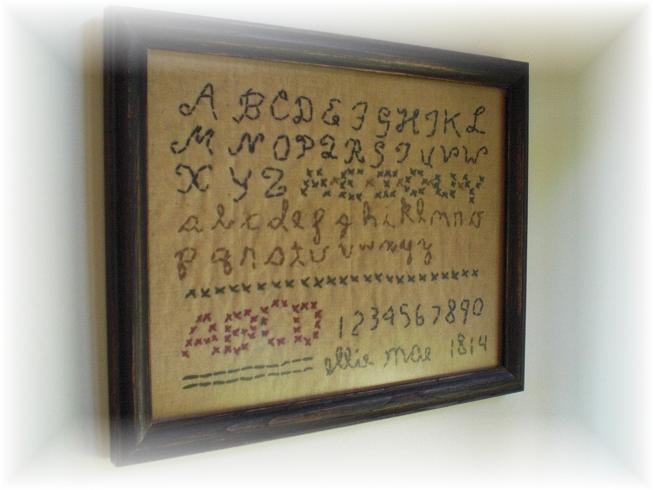 A B C D E F G H I J K L
M N O P Q R S T U V W
X Y Z
a b c d e f g h i k l m n o
p q r s t u v w x y z
ABCD 1234567890
ellie mae 1814